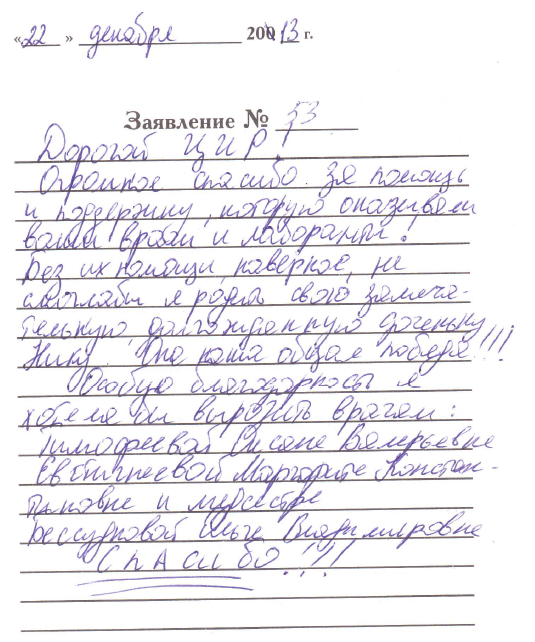 «22» декабря 200 13 г.
Заявление № 53
Дорогой ЦИР!
Огромное спасибо за помощь
и поддержку, которую оказывали
ваши врачи и лаборанты!
Без их помощи, наверное, не
смогла бы я родить свою замеча-
тельную, долгожданную доченьку
Нику. Это наша общая победа!!!
Особую благодарность я
хотела бы выразить врачам:
Тимофеевой Оксане Валерьевне
Евстигнеевой Маргарите Констан-
тиновне и медсестре
Бессудновой Ольге Владимировне
СПАСИБО!!!